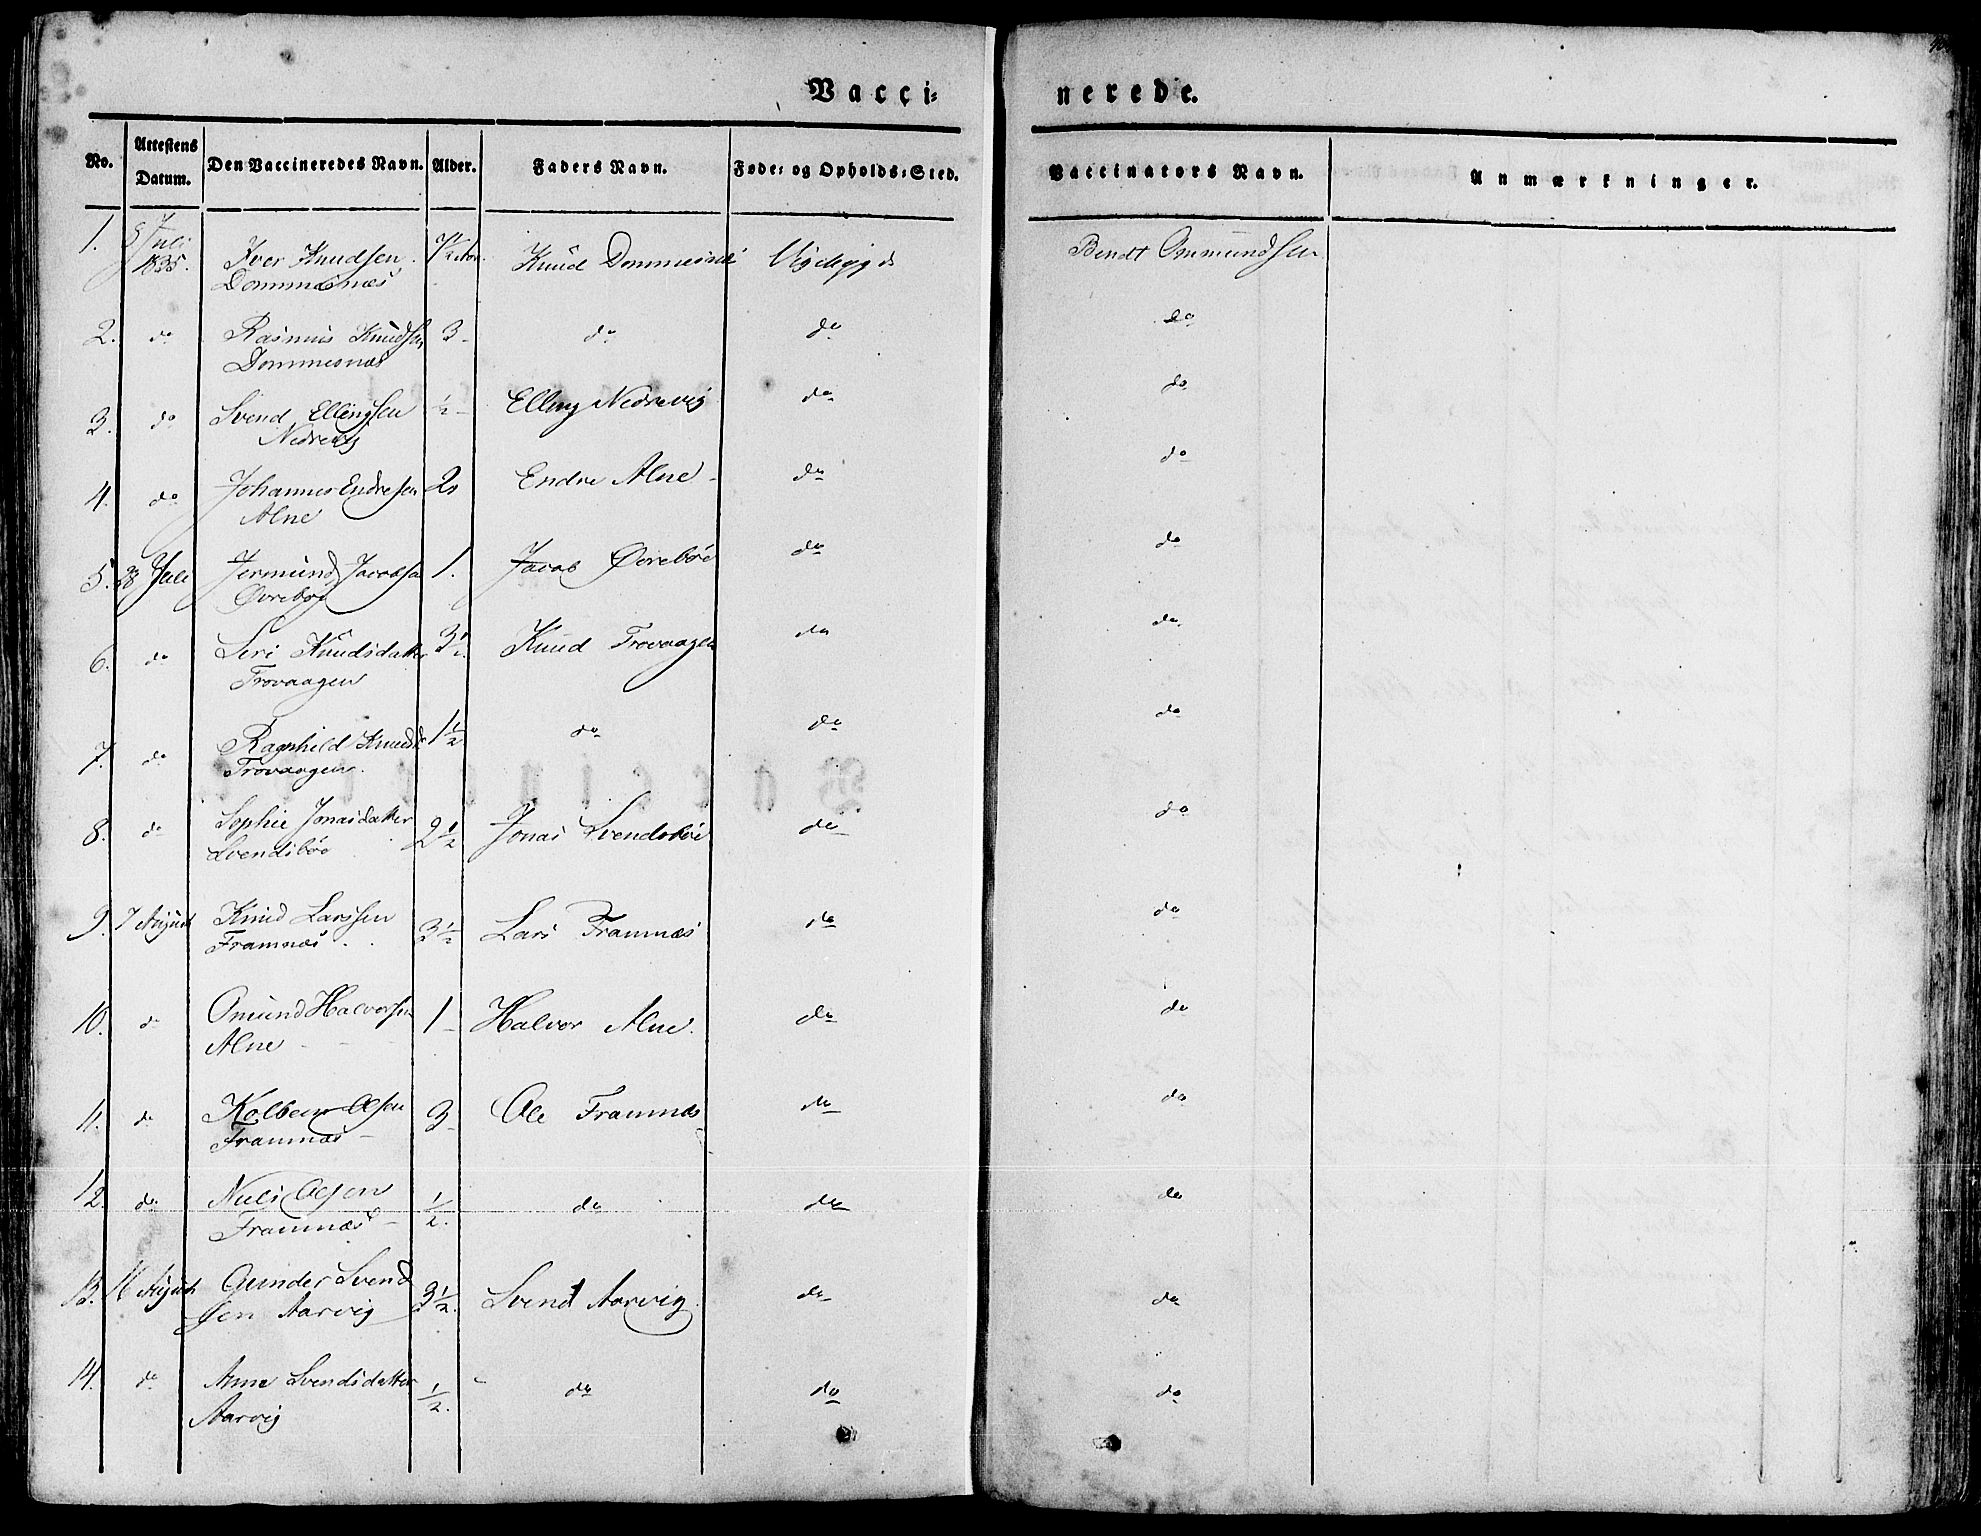 Vacci- nerede.
No. Attestens Datum. Den Vaccineredes Navn. Alder. Faders Navn. Føde- og Opholds-Sted. Vaccinators Navn. Anmærkninger.
1. 5 Juli 1835. Iver Knudsen Knud Dommesnæs Bendt Ommundsen
Dommesnæs
2. do Rasmus Knudsen 3 do do do
Dommesnæs
3. do Svend Ellingsen ½ Elling Nedrevig do do
Nedrevig
4. do Johannes Endresen 2 Endre Alne do do
Alne
5. 28 Juli Jermund Jacobsen 1. Jacob Øvrebøe do do
Øvrebøe
6. do Seri Knudsdatter 3½ Knud Trovaagen do do
Trovaagen
7. do Ragnhild Knudsd. 1½ do do do
Trovaagen.
8. do Sophie Jonasdatter 2½ Jonas Svendsbøe do do
Svendsbøe
9. 7 August Knud Larssen 3½ Lars Framnæs do do
Framnæs
10. do Omund Halvorsen 1 Halvor Alne. do do
Alne
11. do Kolben Olsen 3 Ole Framnæs do do
Framnæs
12. do Niels Olsen ½. do do do
Framnæs
13. 16 August Gunder Svend 3½. Svend Aarvig. do do
sen Aarvig
14. do Anne Svendsdatter ½. do do do
Aarvig